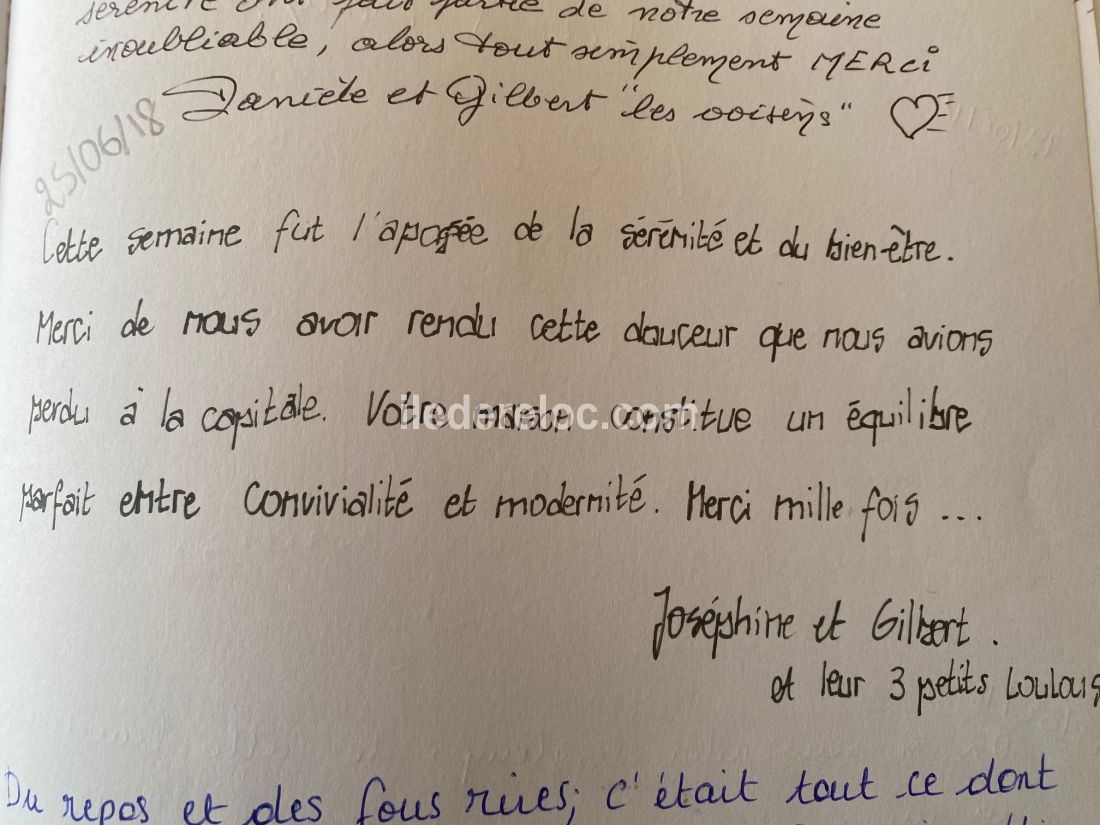 sérénité ont fait partie de notre semaine
inoubliable, alors tout simplement MERCi
Danièle et Gilbert "les voisins"
25/06/18
Cette semaine fut l'apogée de la sérénité et du bien-être.
Merci de nous avoir rendu cette douceur que nous avions
perdu à la capitale. Votre maison constitue un équilibre
parfait entre convivialité et modernité. Merci mille fois ...
Joséphine et Gilbert.
et leur 3 petits Loulous
Du repos et des fous rires; c'était tout ce dont
iledereloc.com